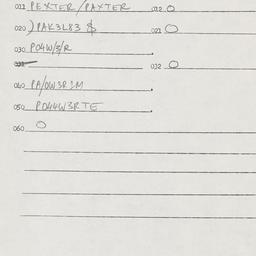 011 PEXTER/PAXTER 012 O
020 )PAK3L83 $ 021 O
030 PO4W/3/R
031 032 O
040 PA/0W3R1M
050 PO44W3RTE
060 O